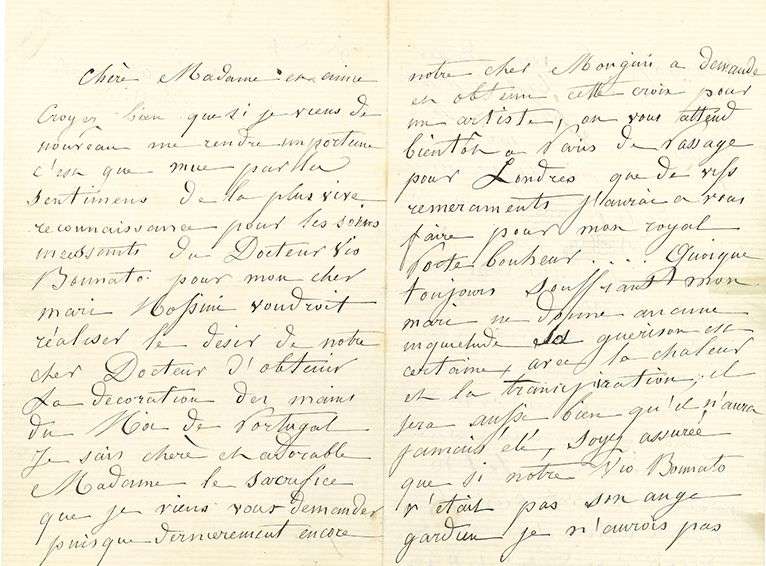 Chère Madame et amie
Croyez bien que si je viens de
nouveau me rendre importune
c'est que mue par la
sentimens de la plus vive
reconnaissance pour les soins
incessants du Docteur Vio
Bonnato pour mon cher
mari Rossini voudroit
réaliser le desir de notre
cher Docteur d'obtenir
La decoration des mains
du Roi de Portugal
Je sais chère et adorable
Madame le sacrifice
que je viens vous demander
puisque dernierement encore
notre cher Mongini a demandé
et obtenu cette croix pour
un artiste, on vous attend
bientôt a Paris de Passage
pour Londres que de vifs
remerciments j'aurai a vous
faire pour mon royal
Porte bonheur.... Quoique
toujours souffrant mon
mari ne donne aucune
inquietude sa guerison est
certaine, avec la chaleur
et la transpiration, il
sera aussi bien qu'il n'aura
jamais été, soyez assurée
que si notre Vio Bonnato
n'était pas son ange
gardien je n'aurois pas